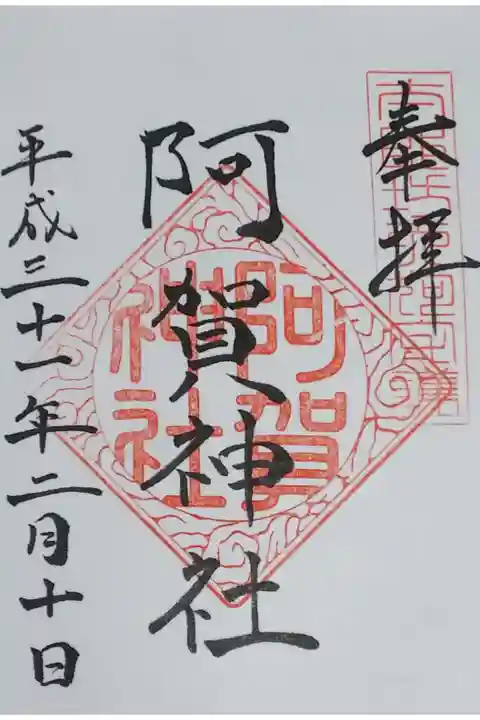 奉拝
阿賀神社
阿賀神社
平成三十一年二月十日